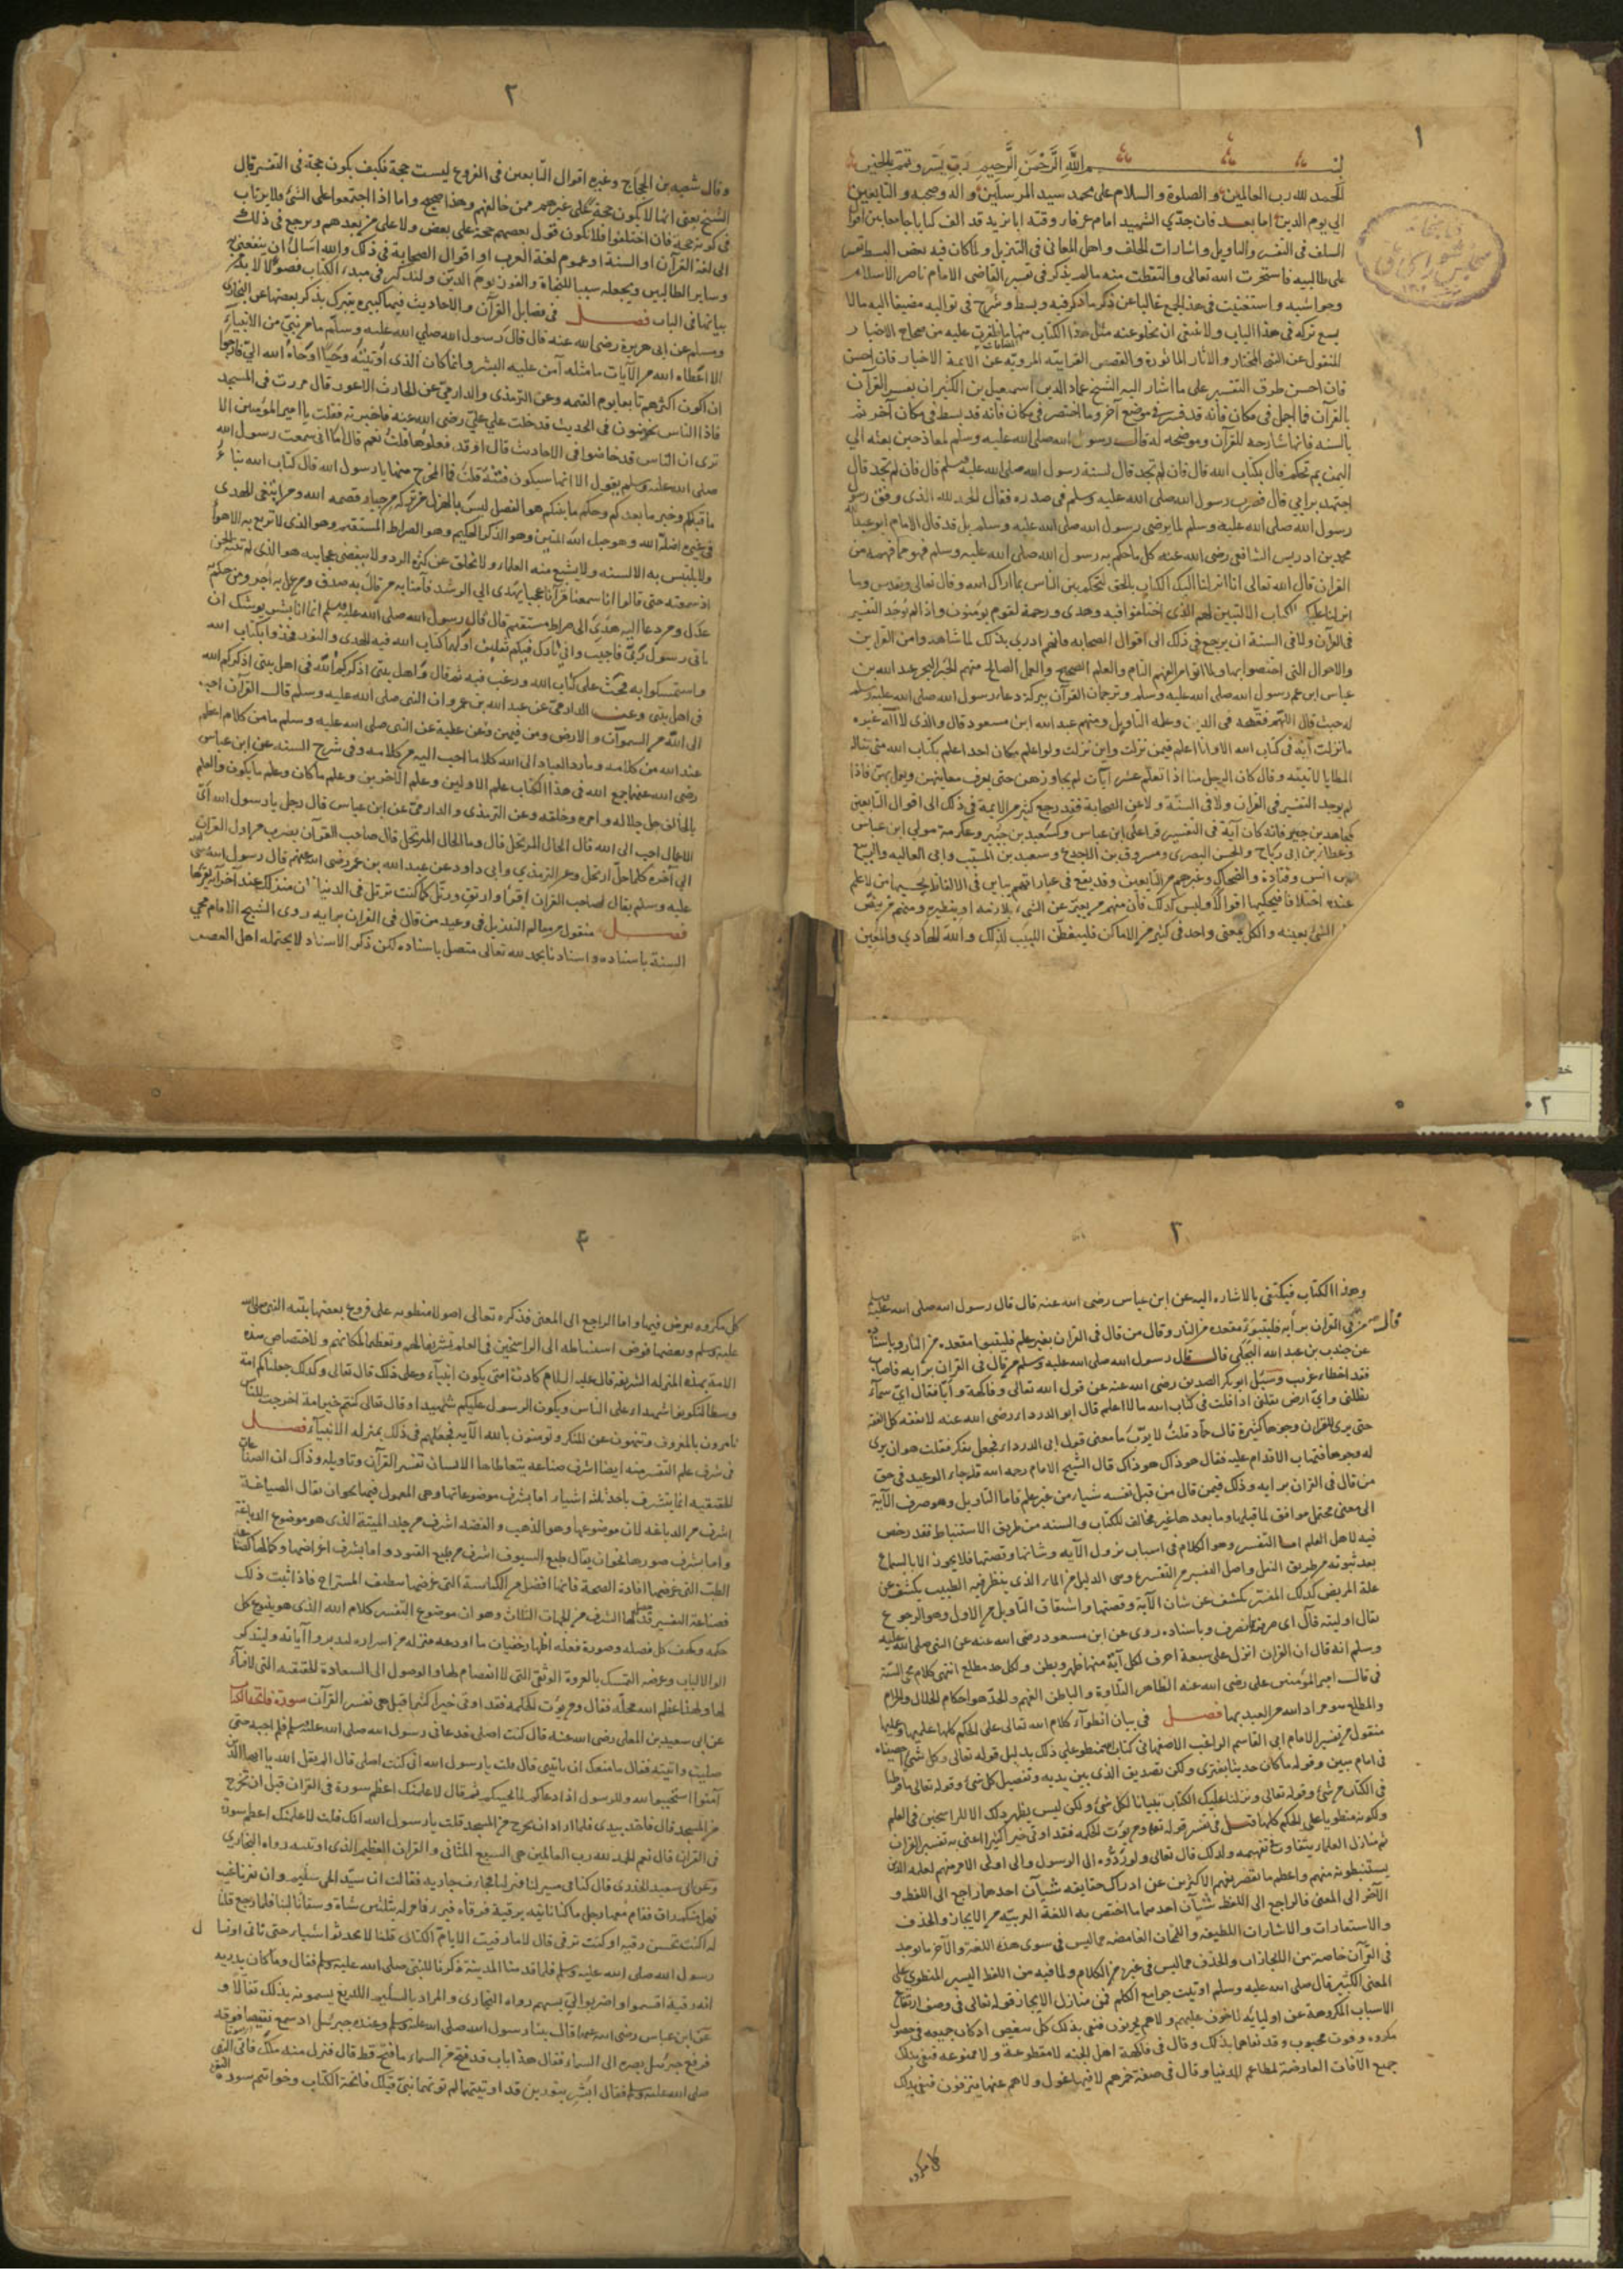 ١
بسم الله الرحمن الرحيم رب يسر وتمم بالخير
الحمد لله رب العالمين والصلوة والسلام على محمد سيد المرسلين واله وصحبه والتابعين
الى يوم الدين اما بعد فان جدي الشهيد امام عرفاء وقته ابا يزيد قد الف كتابا جامعا بين اقوال
السلف فى التفسير والتاويل واشارات الخلف واهل المعانى فى التنزيل ولما كان فيه بعض البسط
على طالبيه فاستخرت الله تعالى والتقطت منه مالم يذكر فى تفسير القاضى الامام ناصر الاسلام
وحواشيه واستغنيت فى هذا الجمع غالبا عن ذكر ما ذكر فيه وبسط وشرح فى تواليه مضيفا اليه مالا
يسع تركه فى هذا الباب ولا ينبغى ان يخلو عنه مثل هذا الكتاب من صحاح الاخبار
المنقول عن النبى المختار والاثار الماثورة والقصص القرانية المروية عن الايمة الاخيار فان احسن
فان احسن طرق التفسير على ما اشار اليه الشيخ عماد الدين اسمعيل بن الكثير ان يفسر القرآن
بالقرآن فما اجمل فى مكان فانه قد فسر فى موضع آخر وما اختصر فى مكان فانه قد بسط فى مكان آخر ثم
بالسنه فانها شارحه للقرآن وموضحه له قال رسول الله صلى الله عليه وسلم لمعاذ حين بعثه الى
اليمن بم تحكم قال بكتاب الله قال فان لم تجد قال لسنة رسول الله صلى الله عليه وسلم قال فان لم تجد قال
اجتهد برايى قال فضرب رسول الله صلى الله عليه وسلم فى صدره فقال الحمد لله الذى وفق رسول
رسول الله صلى الله عليه وسلم لما يرضى رسول الله صلى الله عليه وسلم بل قد قال الامام ابو عبد الله
محمد بن ادريس الشافعى رضى الله عنه كل ما حكم به رسول الله صلى الله عليه وسلم فهو مما فهمه من
القران قال الله تعالى انا انزلنا اليك الكتاب بالحق لتحكم بين الناس بما اراك الله وقال تعالى وتقدس وما
انزلنا عليك الكتاب الا لتبين لهم الذى اختلفوا فيه وهدى ورحمة لقوم يؤمنون واذا لم نجد التفسير
فى القرآن ولا فى السنة ان يرجع فى ذلك الى اقوال الصحابه فانهم ادرى بذلك لما شاهدوا من القراين
والاحوال التى اختصوا بها ولما لهم الفهم التام والعلم الصحيح والعمل الصالح منهم الحبر البحر عبد الله بن
عباس ابن عم رسول الله صلى الله عليه وسلم وترجمان القرآن ببركة دعاء رسول الله صلى الله عليه وسلم
له حيث قال اللهم فقهه فى الدين وعلمه التاويل ومنهم عبد الله ابن مسعود قال والذى لا اله غيره
ما نزلت آية فى كتاب الله الا وانا اعلم فيمن نزلت واين نزلت ولو اعلم مكان احد اعلم بكتاب الله منى تناله
المطايا لاتيته وقال كان الرجل منا اذا تعلم عشر آيات لم يجاوزهن حتى يعرف معانيهن ويعمل بهن فاذا
لم يوجد التفسير فى القران ولا فى السنة ولا عن الصحابة فقد رجع كثير من الايمة فى ذلك الى اقوال التابعين
كمجاهد بن جبير فانه كان آية فى التفسير قرا على ابن عباس وكسعيد بن جبير وعكرمة مولى ابن عباس
وعطاء بن ابى رباح والحسن البصرى ومسروق بن الاجدع وسعيد بن المسيب وابى العاليه والربيع
بن انس وقتادة والضحاك وغيرهم من التابعين وقد يقع فى عباراتهم تباين فى الالفاظ يحسبها من لا علم
عنده اختلافا فيحكيها اقوالا وليس كذلك فان منهم من يعبر عن الشىء بلازمه او بنظيره ومنهم من ينص
الشئ بعينه والكل بمعنى واحد فى كثير من الاماكن فليتفطن اللبيب لذلك والله الهادي والمعين
٢
وقال شعبه بن الحجاج وغيره اقوال التابعين فى الفروع ليست حجة فكيف يكون حجة فى التفسير قال
الشيخ يعنى انها لا يكون حجة على غيرهم ممن خالفهم وهذا صحيح واما اذا اجتمعوا على الشئ فلا يرتاب
فى كونه حجة فان اختلفوا فلا يكون قول بعضهم حجة على بعض ولا على من بعدهم ويرجع فى ذلك
الى لغة القرآن او السنة او عموم لغة العرب او اقوال الصحابة فى ذلك والله اسأل ان ينفعنى به
وساير الطالبين ويجعله سببا للنجاة والفوز يوم الدين ولنذكر فى مبدء الكتاب فصولا لا بد من
بيانها فى الباب فصل فى فضايل القرآن والاحاديث فيها كثيره يتبرك بذكر بعضها عن البخارى
ومسلم عن ابى هريرة رضى الله عنه قال قال رسول الله صلى الله عليه وسلم ما من نبى من الانبياء
الا اعطاه الله من الآيات ما مثله آمن عليه البشر وانما كان الذى اوتيته وحيا اوحاه الله الى فارجوا
ان اكون اكثرهم تابعا يوم القيمه وعن الترمذى والدارمى عن الحارث الاعور قال مررت فى المسجد
فاذا الناس يخوضون فى الحديث فدخلت على على رضى الله عنه فاخبرته فقلت يا امير المؤمنين الا
ترى ان الناس قد خاضوا فى الاحاديث قال اوقد فعلوها قلت نعم قال اما انى سمعت رسول الله
صلى الله عليه وسلم يقول الا انها ستكون فتنة قلت فما المخرج منها يا رسول الله قال كتاب الله نبأ
ما قبلكم وخبر ما بعدكم وحكم ما بينكم هو الفصل ليس بالهزل من تركه من جبار قصمه الله ومن ابتغى الهدى
فى غيره اضله الله وهو حبل الله المتين وهو الذكر الحكيم وهو الصراط المستقيم وهو الذى لا تزيغ به الاهوا
ولا يلتبس به الالسنه ولا يشبع منه العلماء ولا يخلق عن كثرة الرد ولا ينقضى عجايبه هو الذى لم تنته الجن
اذ سمعته حتى قالوا انا سمعنا قرآنا عجبا يهدى الى الرشد فآمنا به من قال به صدق ومن عمل به اجر ومن حكم به
عدل ومن دعا اليه هدى الى صراط مستقيم قال قال رسول الله صلى الله عليه وسلم انما انا بشر يوشك ان
ياتى رسول ربى فاجيب وانى تارك فيكم ثقلين اولهما كتاب الله فيه الهدى والنور فخذوا بكتاب الله
واستمسكوا به فحث على كتاب الله ورغب فيه ثم قال واهل بيتى اذكركم الله فى اهل بيتى اذكركم الله
فى اهل بيتى وعن الدارمى عن عبد الله بن عمرو ان النبى صلى الله عليه وسلم قال القرآن احب
الى الله من السموات والارض ومن فيهن وعن عطية عن النبى صلى الله عليه وسلم ما من كلام اعظم
عند الله من كلامه وما رد العباد الى الله كلاما احب اليه من كلامه وفى شرح السنه عن ابن عباس
رضى الله عنهما جمع الله فى هذا الكتاب علم الاولين وعلم الآخرين وعلم ما كان وعلم ما يكون والعلم
بالخالق جل جلاله وامره وخلقه وعن الترمذى والدارمى عن ابن عباس قال رجل يا رسول الله اى
الاعمال احب الى الله قال الحال المرتحل قال وما الحال المرتحل قال صاحب القرآن يضرب من اول القرآن
الى آخره كلما حل ارتحل وعن الترمذي وابى داود عن عبد الله بن عمر رضى الله عنهم قال رسول الله صلى الله
عليه وسلم يقال لصاحب القران اقرأ وارتق ورتل كما كنت ترتل فى الدنيا فان منزلك عند اخر آية تقرءها
فصل منقول من معالم التنزيل فى وعيد من قال فى القران برايه روى الشيخ الامام محيى
السنة باسناده واسنادنا بحمد لله تعالى متصل باسناده لكن ذكر الاسناد لا يحتمله اهل العصر
٢
وهذا الكتاب فيكتفى بالاشاره اليه عن ابن عباس رضى الله عنه قال قال رسول الله صلى الله عليه وسلم
من قال فى القران برأيه فليتبوء مقعده من النار وقال من قال فى القران بغير علم فليتبوا مقعده من النار وباسناده
عن جندب بن عبد الله البجلى قال قال رسول الله صلى الله عليه وسلم من قال فى القران برايه فاصاب
فقد اخطاء غريب وسئل ابو بكر الصديق رضى الله عنه عن قول الله تعالى وفاكهة وأبا فقال اى سماء
تظلنى واى ارض تقلنى اذا قلت فى كتاب الله ما لا اعلم قال ابو الدرداء رضى الله عنه لا تفقه كل الفقه
حتى يرى للقران وجوها كثيرة قال حماد قلت لايوب ما معنى قول ابى الدرداء فجعل يفكر فقلت هو ان يرى
له وجوها فتهاب الاقدام عليه فقال هو ذاك هو ذاك قال الشيخ الامام رحمه الله قد جاء الوعيد فى حق
من قال فى القران برايه وذلك فيمن قال من قبل نفسه شيا من غير علم فاما التاويل وهو صرف الآية
الى معنى محتمل موافق لما قبلها وما بعدها غير مخالف للكتاب والسنه من طريق الاستنباط فقد رخص
فيه لاهل العلم اما التفسير وهو الكلام فى اسباب نزول الآيه وشانها وقصتها فلا يجوز الا بالسماع
بعد ثبوته من طريق النقل واصل التفسير من التفسرة وهى الدليل من الماء الذى ينظر فيه الطبيب يكشف عن
علة المريض كذلك المفسر يكشف عن شان الآية وقصتها واشتقاق التاويل من الاول وهو الرجوع
يقال اولته فآل اى صرفته فانصرف وباسناده روى عن ابن مسعود رضى الله عنه عن النبى صلى الله عليه
وسلم انه قال ان القران انزل على سبعة احرف لكل آية منها ظهر وبطن ولكل حد مطلع انتهى كلام محى السنة
قال امير المؤمنين على رضى الله عنه الظاهر التلاوة والباطن الفهم والحد هو احكام الحلال والحرام
والمطلع هو مراد الله من العبد بها فصل فى بيان انطواء كلام الله تعالى على الحكم كلها علميها وعمليها
منقول من تفسير الامام ابى القاسم الراغب الاصفهانى كتاب الله منطو على ذلك بدليل قوله تعالى وكل شئ احصيناه
فى امام مبين وقوله ما كان حديثا يفترى ولكن تصديق الذى بين يديه وتفصيل كل شئ وقوله تعالى ما فرطنا
فى الكتاب من شئ وقوله تعالى ونزلنا عليك الكتاب تبيانا لكل شئ ولكن ليس يظهر ذلك الا للراسخين فى العلم
ولكونه منطويا على الحكم كلها قيل فى تفسير قوله تعالى ومن يوت الحكمه فقد اوتى خيرا كثيرا اعنى به تفسير القران
ثم منازل العلماء يتفاوت فى تفهيمه ولذلك قال تعالى ولو ردوه الى الرسول والى اولى الامر منهم لعلمه الذين
يستنبطونه منهم واعظم ما يقصر بفهم الاكثرين عن ادراك حقايقه شيآن احدهما راجع الى اللفظ و
الآخر الى المعنى فالراجع الى اللفظ شيآن احدهما ما اختص به اللغة العربيه من الايجاز والحذف
والاستعارات والاشارات اللطيفه واللمحات الغامضه مما ليس فى سوى هذه اللغة والآخر ما يوجد
فى القرآن خاصة من الايجازات والحذف مما ليس فى غيره من الكلام وما فيه من اللفظ اليسير المنطوى على
المعنى الكثير قال صلى الله عليه وسلم اوتيت جوامع الكلم فمن منازل الايجاز قوله تعالى فى وصف ارتفاع
الاسباب المكروهة عن اوليائه لا خوف عليهم ولا هم يحزنون فنفى بذلك كل تنغيص اذ كان جميعه فى حصول
مكروه وفوت محبوب وقد نفاهما بذلك وقال فى فاكهة اهل الجنه لا مقطوعة ولا ممنوعه فنفى بذلك
جميع الآفات العارضة لمطاعم الدنيا وقال فى صفة خمرهم لا فيها غول ولا هم عنها ينزفون فنفى بذلك
كل مكروه
٤
كل مكروه يعرض فيها واما الراجع الى المعنى فذكره تعالى اصولا منطويه على فروع بعضها بينه النبى صلى الله
عليه وسلم وبعضها فوض استنباطه الى الراسخين فى العلم تشريفا لهم وتعظيما لمكانهم ولاختصاص هذه
الامة بهذه المنزله الشريفه قال عليه السلام كادت امتى يكون انبياء وعلى ذلك قال تعالى وكذلك جعلناكم امة
وسطا لتكونوا شهداء على الناس ويكون الرسول عليكم شهيدا وقال تعالى كنتم خير امة اخرجت للناس
تامرون بالمعروف وتنهون عن المنكر وتومنون بالله الآيه فجعلهم فى ذلك بمنزله الانبياء فصل
فى شرف علم التفسير منه ايضا اشرف صناعه يتعاطاها الانسان تفسير القرآن وتاويله وذاك ان الصناعات
الحقيقيه انما يتشرف باحد ثلثه اشياء اما بشرف موضوعاتها وهى المعمول فيها نحو ان يقال الصياغة
اشرف من الدباغه لان موضوعها وهو الذهب والفضه اشرف من جلد الميتة الذى هو موضوع الدباغة
واما بشرف صورها نحو ان يقال طبع السيوف اشرف من طبع القيود واما بشرف اغراضها وكمالها كصناعة
الطب التى غرضها افادة الصحة فانها افضل من الكناسة التى غرضها تنظيف المستراح فاذا ثبت ذلك
فصناعة التفسير قد حصل لها الشرف من الجهات الثلاث وهو ان موضوع التفسير كلام الله الذى هو ينبوع كل
حكمه ومعدن كل فضله وصورة فعله اظهار خفيات ما اودعه منزله من اسراره ليدبروا آياته وليتذكر
الوا الالباب وغرضه التمسك بالعروة الوثقى التى لا انفصام لها والوصول الى السعادة الحقيقيه التى لا فناء
لها ولهذا عظم الله محله فقال ومن يوت الحكمة فقد اوتى خيرا كثيرا قيل هى تفسير القرآن سورة فاتحة الكتاب
عن ابى سعيد بن المعلى رضى الله عنه قال كنت اصلى فدعانى رسول الله صلى الله عليه وسلم فلم اجبه حتى
صليت واتيته فقال ما منعك ان ياتينى قال قلت يا رسول الله انى كنت اصلى قال الم يقل الله يا ايها الذين
آمنوا استجيبوا لله وللرسول اذا دعاكم لما يحييكم ثم قال لاعلمنك اعظم سورة فى القران قبل ان تخرج
من المسجد قال فاخذ بيدى فلما اراد ان يخرج من المسجد قلت يا رسول الله انك قلت لاعلمنك اعظم سورة
فى القران قال نعم الحمد لله رب العالمين هى السبع المثانى والقران العظيم الذى اوتيته رواه البخارى
وعن ابى سعيد الخدرى قال كنا فى مسير لنا فنزلنا فجاءت جاريه فقالت ان سيد الحى سليم وان نفرنا غيب
فهل منكم راق فقام معها رجل ما كنا نابنه برقية فرقاه فبرء فامر له بثلثين شاة وسقانا لبنا فلما رجع قلنا
له اكنت تحسن رقيه او كنت ترقى قال لا ما رقيت الا بام الكتاب قلنا لا تحدثوا شيا حتى ناتى او نسال
رسول الله صلى الله عليه وسلم فلما قدمنا المدينة ذكرنا للنبى صلى الله عليه وسلم فقال وما كان يدريه
انه رقية اقسموا واضربوا لى بسهم رواه البخارى والمراد بالسليم اللديغ يسمونه بذلك تفالا و
عن ابن عباس رضى الله عنهما قال بينا رسول الله صلى الله عليه وسلم وعنده جبرئيل اذ سمع نقيضا فوقه
فرفع جبرئيل بصره الى السماء فقال هذا باب قد فتح من السماء ما فتح قط قال فنزل منه ملك فاتى النبى
صلى الله عليه وسلم فقال ابشر بنورين قد اوتيتهما لم يوتهما نبى قبلك فاتحة الكتاب وخواتيم سورة